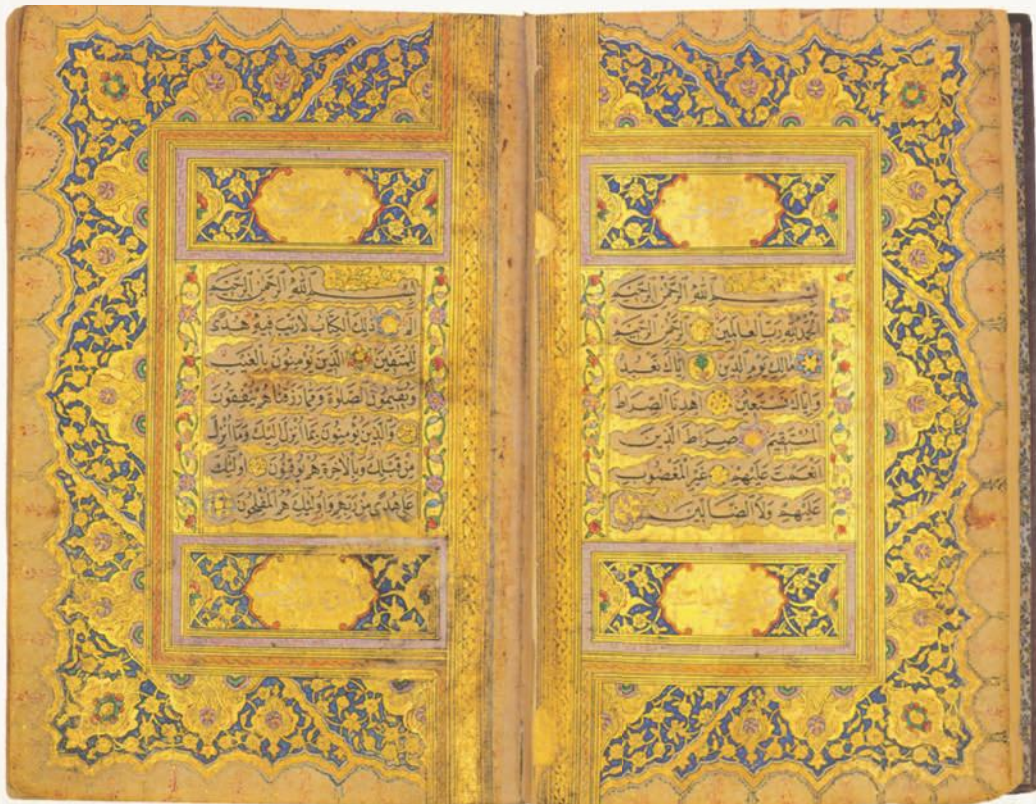 بِسْمِ اللّٰهِ الرَّحْمٰنِ الرَّحِيمِ
اَلْحَمْدُ لِلّٰهِ رَبِّ الْعَالَمِينَ الرَّحْمٰنِ الرَّحِيمِ
مَالِكِ يَوْمِ الدِّينِ اِيَّاكَ نَعْبُدُ
وَاِيَّاكَ نَسْتَعِينُ اِهْدِنَا الصِّرَاطَ
الْمُسْتَقِيمَ صِرَاطَ الَّذِينَ
اَنْعَمْتَ عَلَيْهِمْ غَيْرِ الْمَغْضُوبِ
عَلَيْهِمْ وَلَا الضَّالِّينَ
بِسْمِ اللّٰهِ الرَّحْمٰنِ الرَّحِيمِ
الم ذٰلِكَ الْكِتَابُ لَا رَيْبَ فِيهِ هُدًى
لِلْمُتَّقِينَ الَّذِينَ يُؤْمِنُونَ بِالْغَيْبِ
وَيُقِيمُونَ الصَّلٰوةَ وَمِمَّا رَزَقْنَاهُمْ يُنْفِقُونَ
وَالَّذِينَ يُؤْمِنُونَ بِمَا اُنْزِلَ اِلَيْكَ وَمَا اُنْزِلَ
مِنْ قَبْلِكَ وَبِالْاٰخِرَةِ هُمْ يُوقِنُونَ اُولٰئِكَ
عَلٰى هُدًى مِنْ رَبِّهِمْ وَاُولٰئِكَ هُمُ الْمُفْلِحُونَ